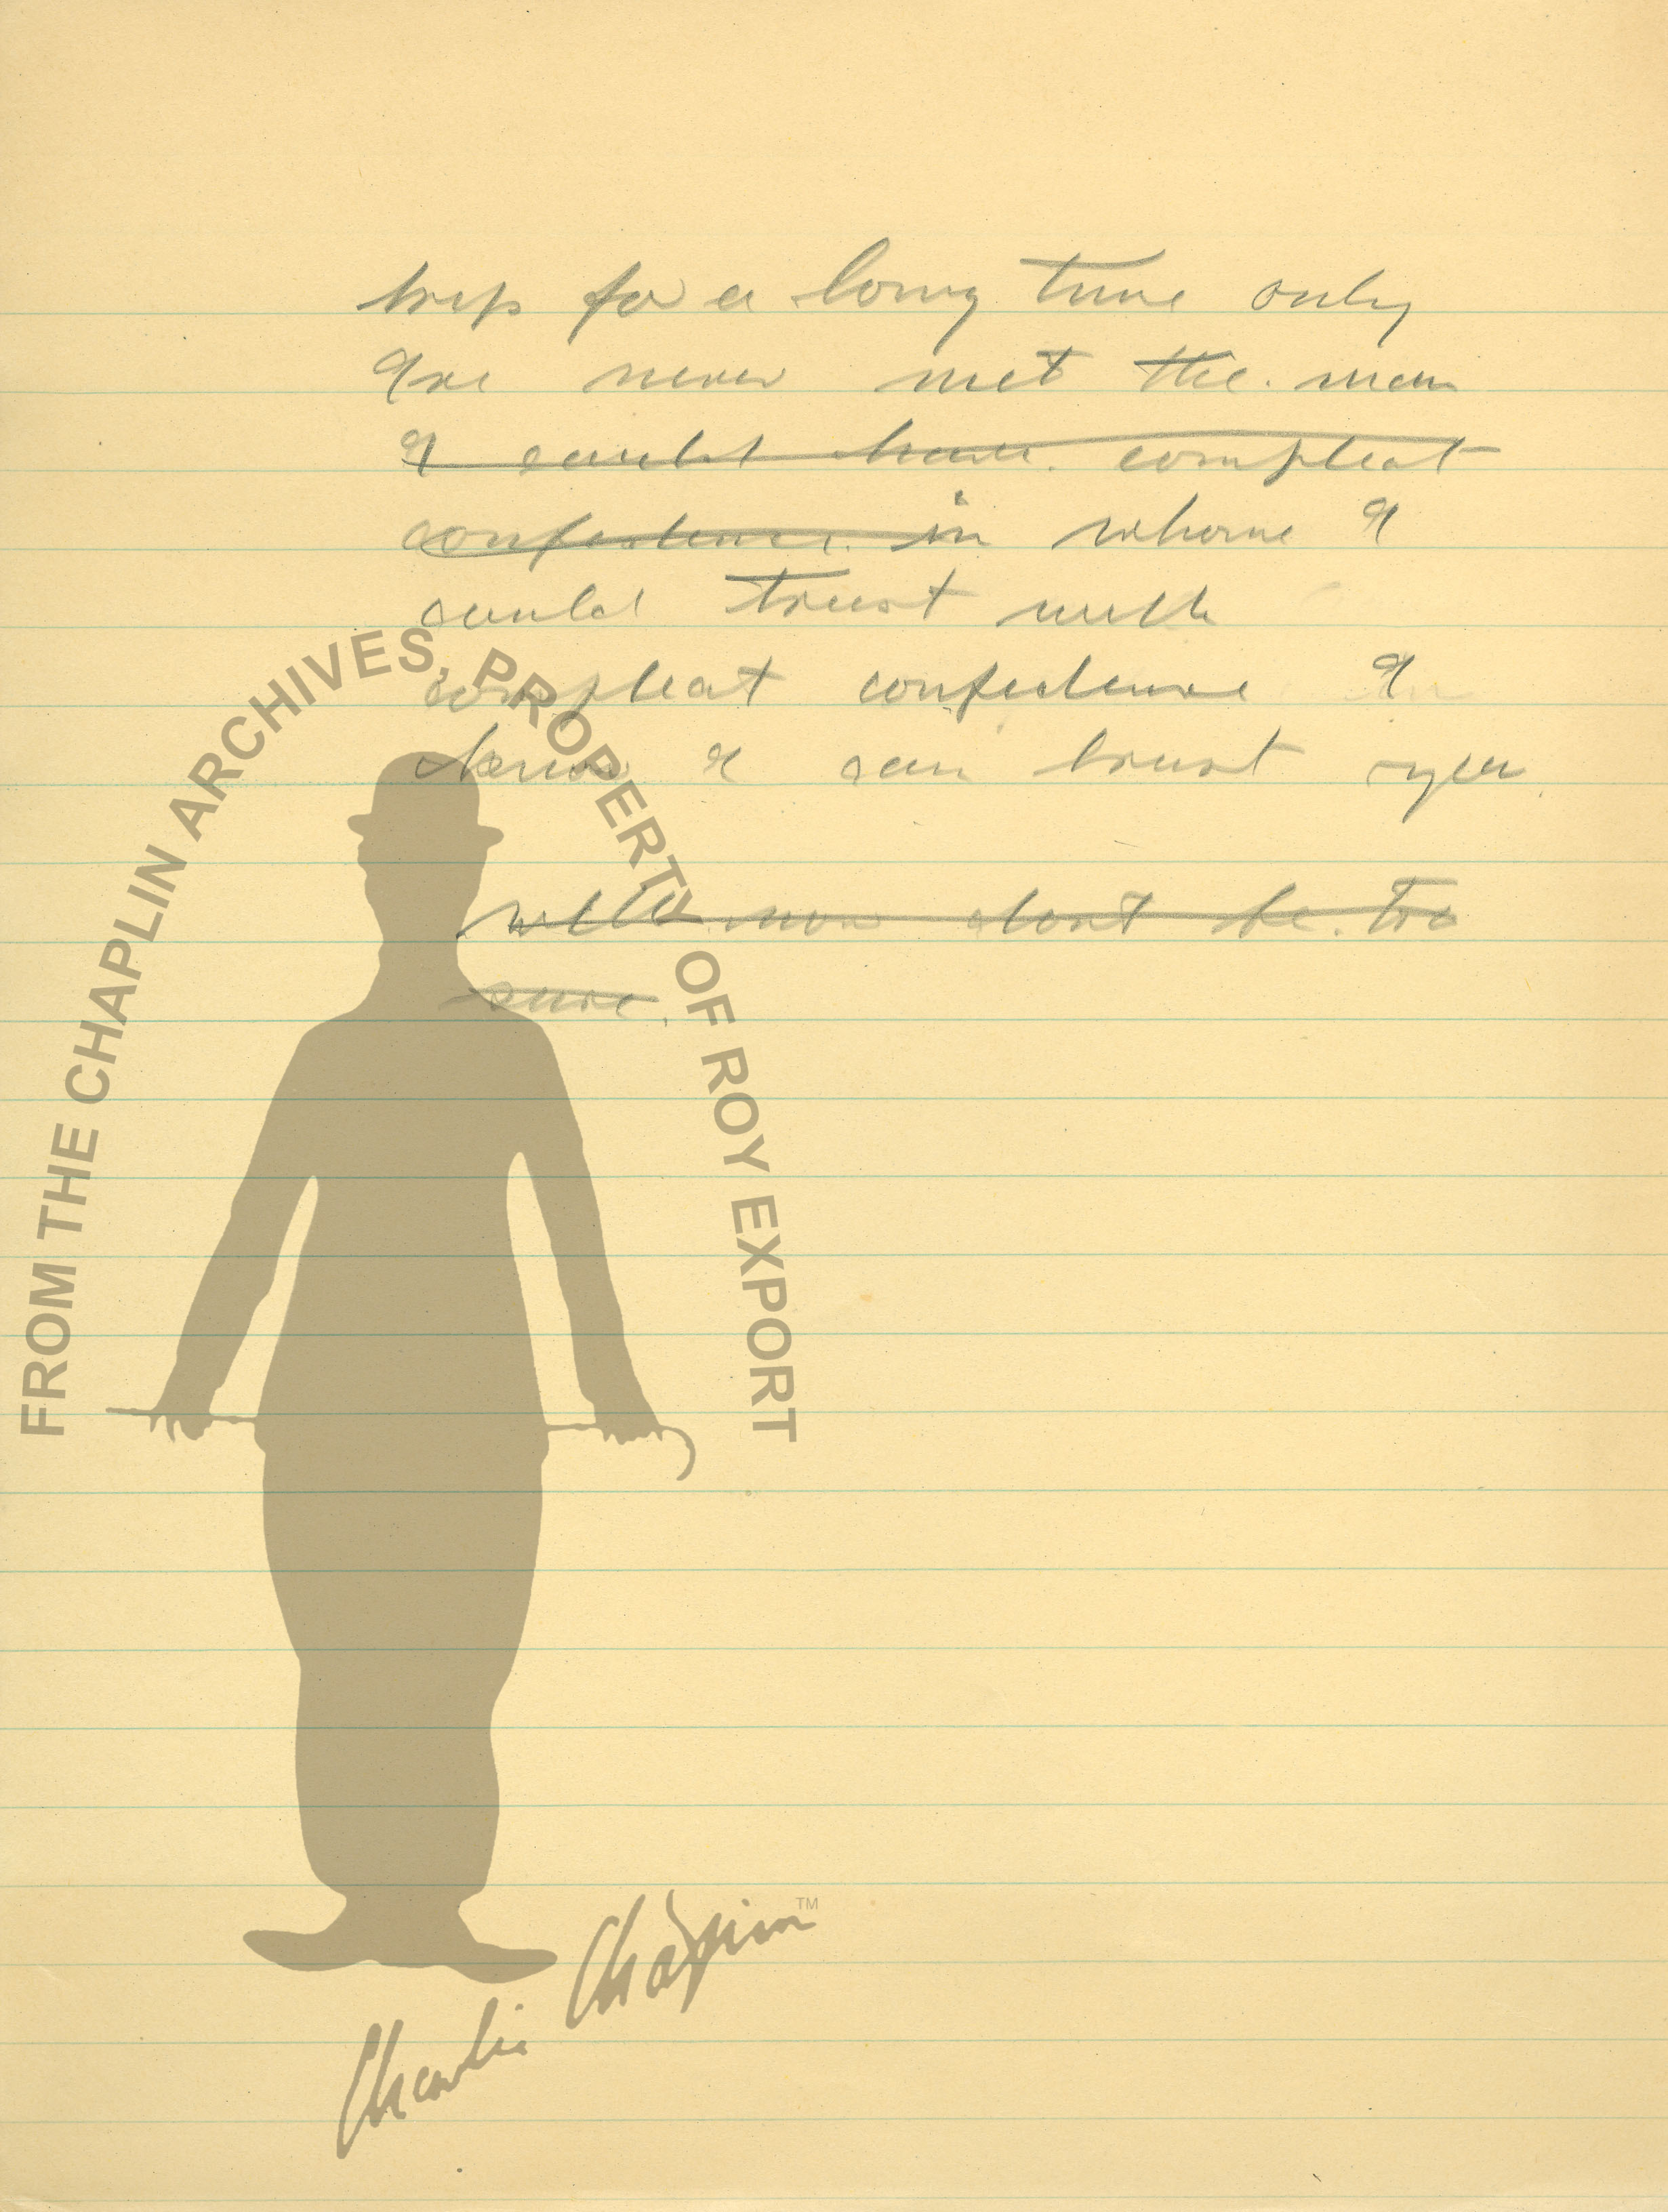 trip for a long time only
I've never met the man
I could have compleat
confedence in whome I
could trust with
compleat confedence I
know I can trust you.
well now dont be too
sure.
FROM THE CHAPLIN ARCHIVES, PROPERTY OF ROY EXPORT
Charlie Chaplin TM